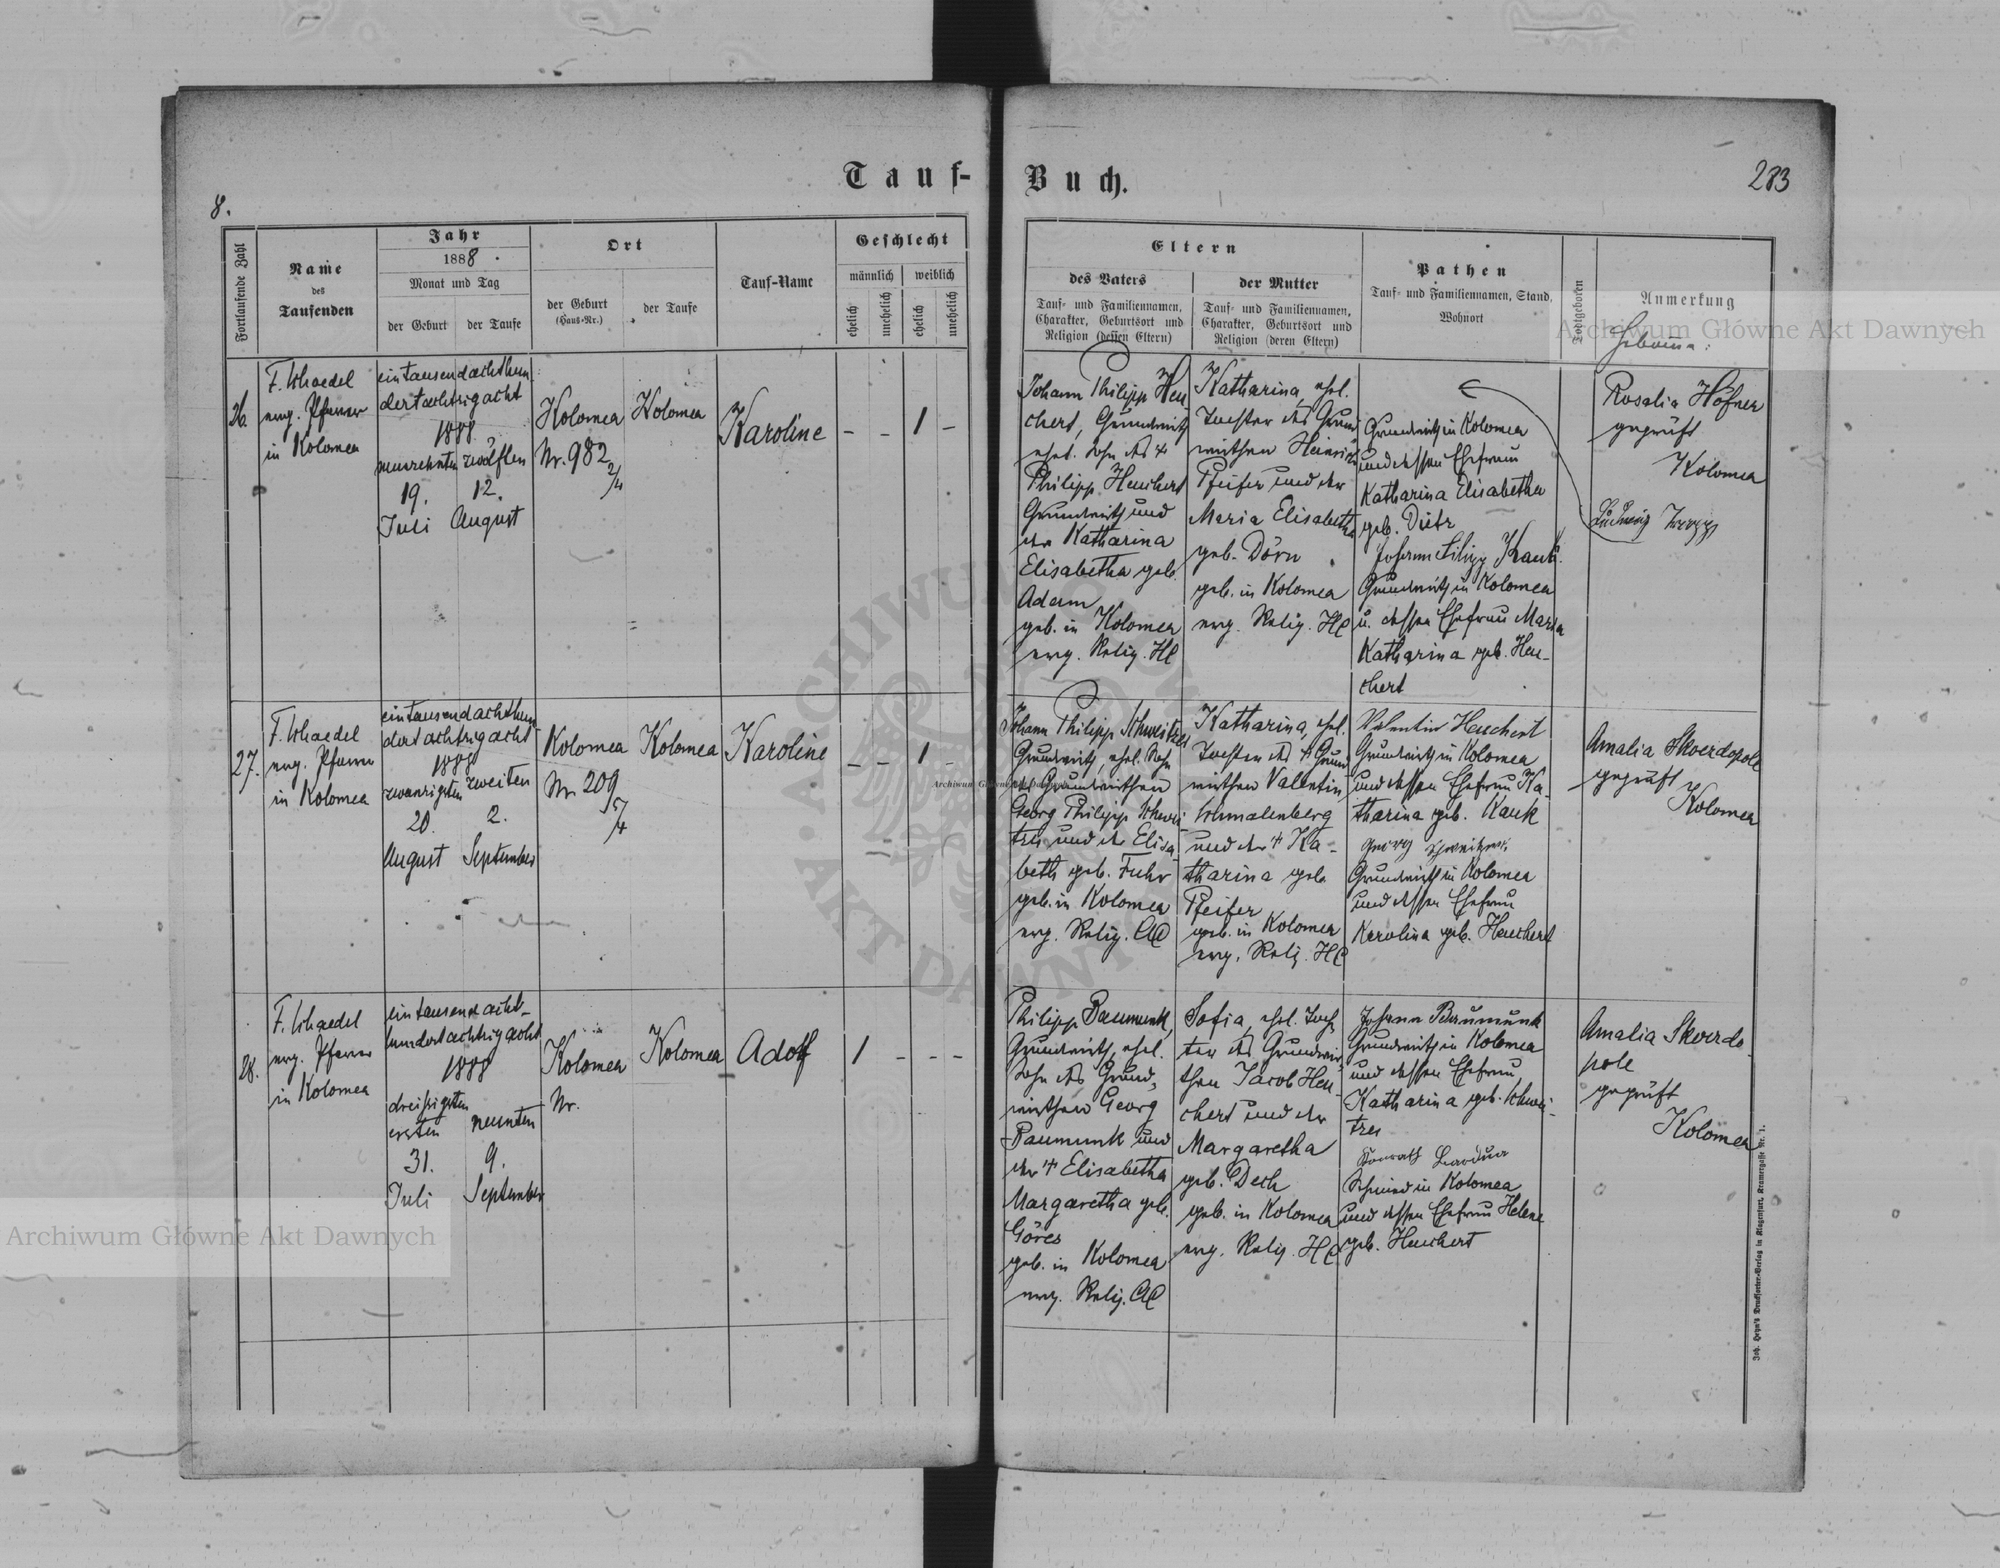 Tauf-
Buch.
8.
283
Fortlaufende Zahl
Name
des
Taufenden
Jahr
1888.
Monat und Tag
der Geburt
der Taufe
Ort
der Geburt
(Haus-Nr.)
der Taufe
Tauf-Name
Geschlecht
männlich
weiblich
ehelich
unehelich
ehelich
unehelich
Eltern
des Vaters
Tauf- und Familiennamen,
Charakter, Geburtsort und
Religion (dessen Eltern)
der Mutter
Tauf- und Familiennamen,
Charakter, Geburtsort und
Religion (deren Eltern)
Pathen
Tauf- und Familiennamen, Stand,
Wohnort
Todtgeboren
Anmerkung
Hebamme:
26.
F. Schaedel
evng. Pfarrer
in Kolomea
eintausendachthun-
dertachtzigacht
1888
neunzehnten zwölften
19. 12.
Juli August
Kolomea
Nr. 982
2/4
Kolomea
Karoline
- - 1 -
Johann Philipp Heu-
chert, Grundwirth
ehel. Sohn des †
Philipp Heuchert
Grundwirth und
der Katharina
Elisabetha geb.
Adam
geb. in Kolomea
evg. Relig. HC
Katharina, ehel.
Tochter des Grund-
wirthen Heinrich
Pfeifer und der
Maria Elisabetha
geb. Dörn
geb. in Kolomea
evg. Relig. HC
Grundwirth in Kolomea
und dessen Ehefrau
Katharina Elisabetha
geb. Dietz
Johann Filipp Kauk
Grundwirth in Kolomea
u. dessen Ehefrau Maria
Katharina geb. Heu-
chert
Rosalia Höfner
geprüft
Kolomea
Ludwig
27.
F. Schaedel
evg. Pfarrer
in Kolomea
eintausendachthun-
dertachtzigacht
1888
zwanzigsten zweiten
20. 2.
August September
Kolomea
Nr 209
5/4
Kolomea
Karoline
- - 1 -
Johann Philipp Schweitzer
Grundwirth, ehel. Sohn
des Grundwirthen
Georg Philipp Schwei-
tzer und der Elisa-
beth geb. Fuhr
geb. in Kolomea
evg. Relig. AC
Katharina, ehel.
Tochter des † Grund-
wirthen Valentin
Schmalenberg
und der † Ka-
tharina geb.
Pfeifer
geb. in Kolomea
evg. Relig. HC
Valentin Heuchert
Grundwirth in Kolomea
und dessen Ehefrau Ka-
tharina geb. Kauk
Georg Schweitzer,
Grundwirth in Kolomea
und dessen Ehefrau
Karolina geb. Heuchert
Amalia Skoerdopole
geprüft
Kolomea
28.
F. Schaedel
evg. Pfarrer
in Kolomea
eintausendacht-
hundertachtzigacht
1888
dreisigsten
ersten neunten
31. 9.
Juli September
Kolomea
Nr.
Kolomea
Adolf
1 - - -
Philipp Baumunk,
Grundwirth, ehel.
Sohn des Grund-
wirthen Georg
Baumunk und
der † Elisabetha
Margaretha geb.
Göres
geb. in Kolomea
evg. Relig. AC
Sofia, ehel. Toch-
ter des Grundwir-
then Jacob Heu-
chert und der
Margaretha
geb. Dech
geb. in Kolomea
evg. Relig. HC
Johann Baumunk
Grundwirth in Kolomea
und dessen Ehefrau
Katharina geb. Schwei-
tzer
Konrath
Schmied in Kolomea
und dessen Ehefrau Helene
geb. Heuchert
Amalia Skoerdo-
pole
geprüft
Kolomea
Joh. Heyn's Drucksorten-Verlag in Klagenfurt, Kramergasse Nr. 1.
Archiwum Główne Akt Dawnych
Archiwum Główne Akt Dawnych
Archiwum Główne Akt Dawnych